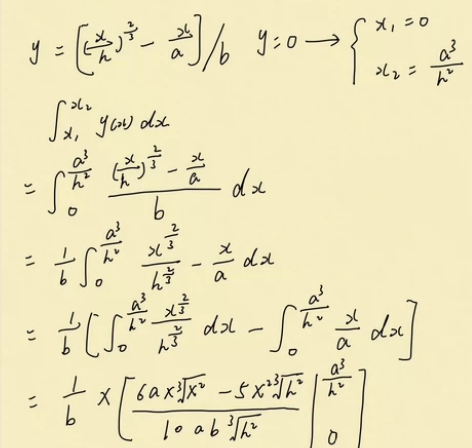 y = [(x/h)^(2/3) - x/a]/b  y=0 → { x₁ = 0
x₂ = a³/h²
∫_{x₁}^{x₂} y(x) dx
= ∫_0^{a³/h²} ((x/h)^(2/3) - x/a)/b dx
= 1/b ∫_0^{a³/h²} x^(2/3)/h^(2/3) - x/a dx
= 1/b [∫_0^{a³/h²} x^(2/3)/h^(2/3) dx - ∫_0^{a³/h²} x/a dx]
= 1/b × [(6ax ∛x² - 5x² ∛h²)/(10ab ∛h²) |_0^{a³/h²}]